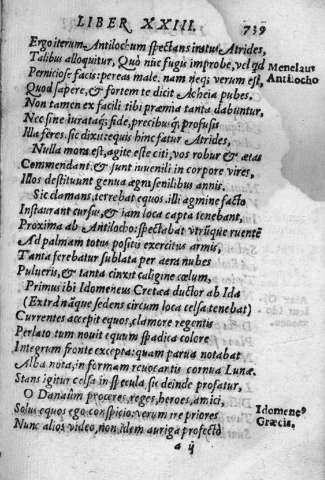 LIBER XXIII. 739
Ergo iterum Antilochum spectans iratus Atrides,
Talibus alloquitur. Quò nūc fugis improbe, vel qd
Menelaus
Perniciose facis: pereas male. nam neq; verum est,
Antilocho
Quod sapere, & fortem te dicit Acheia pubes.
Non tamen ex facili tibi præmia tanta dabuntur,
Nec sine iurata q; fide, precibusq; profusis
Illa feres. sic dixit: equis hinc fatur Atrides,
Nulla mora est, agite este citi, vos robur & ætas
Commendant: & sunt iuuenili in corpore vires,
Illos destituunt genua ægra senilibus annis.
Sic clamans, terrebat equos. illi agmine facto
Instaurant cursus, & iam loca capta tenebant,
Proxima ab Antilocho: spectabat vtrūque ruentē
Ad palmam totus positis exercitus armis,
Tanta ferebatur sublata per aera nubes
Pulueris, & tanta cinxit caligine cœlum,
Primus ibi Idomeneus Cretæa ductor ab Ida
(Extrà nāque sedens circum loca celsa tenebat)
Currentes accepit equos, clamore regentis
Perlato tum nouit equum spadica colore
Integrum fronte excepta: quam parua notabat
Alba nota, in formam reuocartis cornua Lunæ.
Stans igitur celsa in specula, sic deinde profatur,
O Danaûm proceres, reges, heroes, amici,
Idomeneꝰ
Solus equos ego conspicio: verum ire priores
Græcis.
Nunc alios video, non idem auriga profectò
a ij